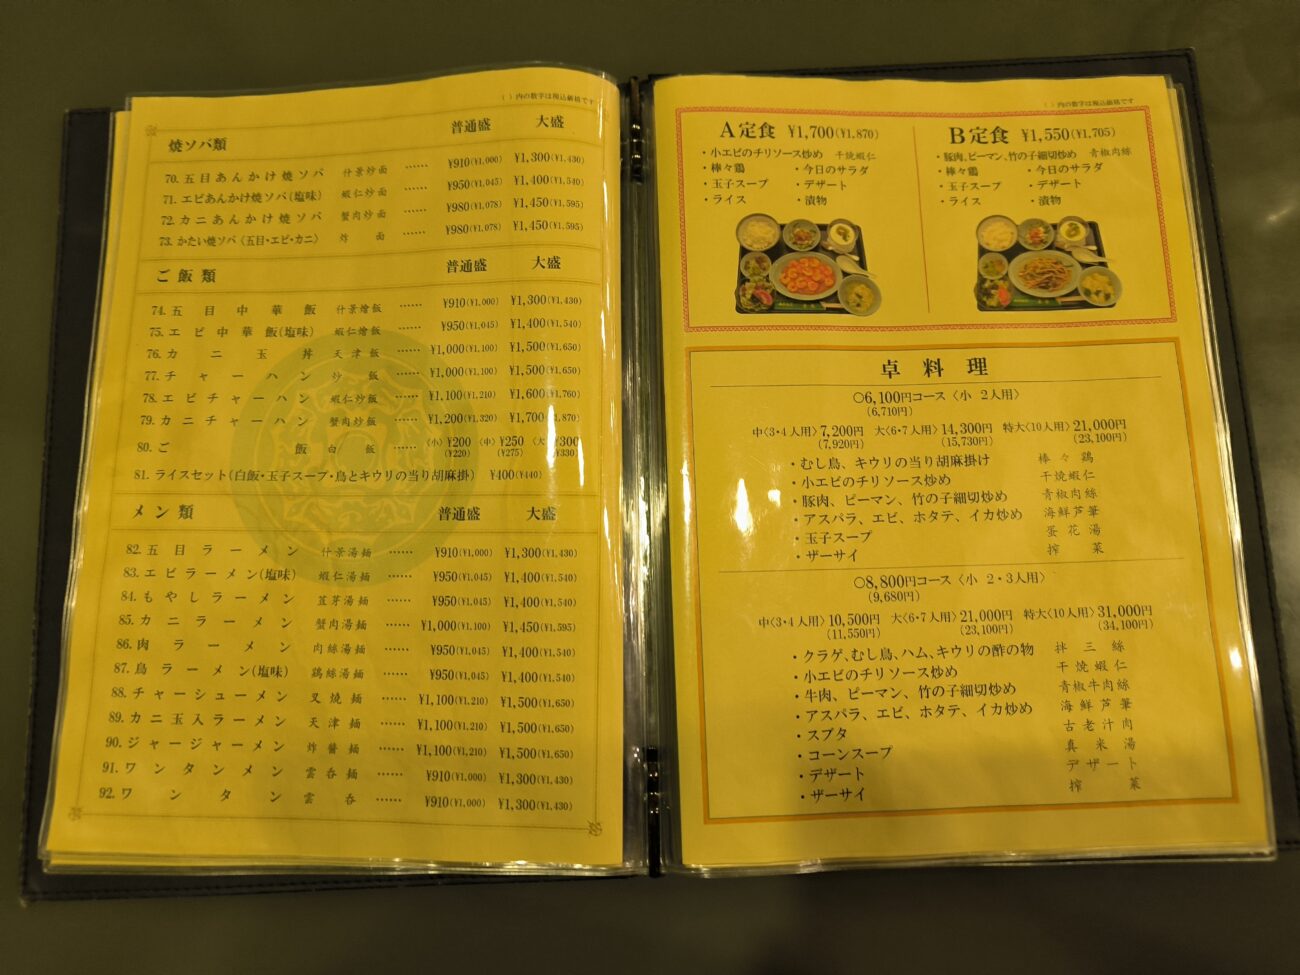 ( ) 内の数字は税込価格です
焼ソバ類 普通盛 大盛
70. 五目あんかけ焼ソバ 什景炒面 …… ¥910(¥1,000) ¥1,300(¥1,430)
71. エビあんかけ焼ソバ(塩味) 蝦仁炒面 …… ¥950(¥1,045) ¥1,400(¥1,540)
72. カニあんかけ焼ソバ 蟹肉炒面 …… ¥980(¥1,078) ¥1,450(¥1,595)
73. かたい焼ソバ〈五目・エビ・カニ〉 炸面 …… ¥980(¥1,078) ¥1,450(¥1,595)
ご飯類 普通盛 大盛
74. 五目中華飯 什景燴飯 …… ¥910(¥1,000) ¥1,300(¥1,430)
75. エビ中華飯(塩味) 蝦仁燴飯 …… ¥950(¥1,045) ¥1,400(¥1,540)
76. カニ玉丼 天津飯 …… ¥1,000(¥1,100) ¥1,500(¥1,650)
77. チャーハン 炒飯 …… ¥1,000(¥1,100) ¥1,500(¥1,650)
78. エビチャーハン 蝦仁炒飯 …… ¥1,100(¥1,210) ¥1,600(¥1,760)
79. カニチャーハン 蟹肉炒飯 …… ¥1,200(¥1,320) ¥1,700(¥1,870)
80. ご飯 白飯 …… 〈小〉¥200(¥220) 〈中〉¥250(¥275) 〈大〉¥300(¥330)
81. ライスセット(白飯・玉子スープ・鳥とキウリの当り胡麻掛) ¥400(¥440)
メン類 普通盛 大盛
82. 五目ラーメン 什景湯麺 …… ¥910(¥1,000) ¥1,300(¥1,430)
83. エビラーメン(塩味) 蝦仁湯麺 …… ¥950(¥1,045) ¥1,400(¥1,540)
84. もやしラーメン 荳芽湯麺 …… ¥950(¥1,045) ¥1,400(¥1,540)
85. カニラーメン 蟹肉湯麺 …… ¥1,000(¥1,100) ¥1,450(¥1,595)
86. 肉ラーメン 肉絲湯麺 …… ¥950(¥1,045) ¥1,400(¥1,540)
87. 鳥ラーメン(塩味) 鶏絲湯麺 …… ¥950(¥1,045) ¥1,400(¥1,540)
88. チャーシューメン 叉焼麺 …… ¥1,100(¥1,210) ¥1,500(¥1,650)
89. カニ玉入ラーメン 天津麺 …… ¥1,100(¥1,210) ¥1,500(¥1,650)
90. ジャージャーメン 炸醤麺 …… ¥1,100(¥1,210) ¥1,500(¥1,650)
91. ワンタンメン 雲呑麺 …… ¥910(¥1,000) ¥1,300(¥1,430)
92. ワンタン 雲呑 …… ¥910(¥1,000) ¥1,300(¥1,430)
( ) 内の数字は税込価格です
A定食 ¥1,700(¥1,870)
・小エビのチリソース炒め 干焼蝦仁
・棒々鶏 ・今日のサラダ
・玉子スープ ・デザート
・ライス ・漬物
B定食 ¥1,550(¥1,705)
・豚肉、ピーマン、竹の子細切炒め 青椒肉絲
・棒々鶏 ・今日のサラダ
・玉子スープ ・デザート
・ライス ・漬物
卓料理
○6,100円コース〈小 2人用〉
(6,710円)
中〈3・4人用〉7,200円 大〈6・7人用〉14,300円 特大〈10人用〉21,000円
(7,920円) (15,730円) (23,100円)
・むし鳥、キウリの当り胡麻掛け 棒々鶏
・小エビのチリソース炒め 干焼蝦仁
・豚肉、ピーマン、竹の子細切炒め 青椒肉絲
・アスパラ、エビ、ホタテ、イカ炒め 海鮮芦筆
・玉子スープ 蛋花湯
・ザーサイ 搾菜
○8,800円コース〈小 2・3人用〉
(9,680円)
中〈3・4人用〉10,500円 大〈6・7人用〉21,000円 特大〈10人用〉31,000円
(11,550円) (23,100円) (34,100円)
・クラゲ、むし鳥、ハム、キウリの酢の物 拌三絲
・小エビのチリソース炒め 干焼蝦仁
・牛肉、ピーマン、竹の子細切炒め 青椒牛肉絲
・アスパラ、エビ、ホタテ、イカ炒め 海鮮芦筆
・スブタ 古老汁肉
・コーンスープ 真米湯
・デザート デザート
・ザーサイ 搾菜